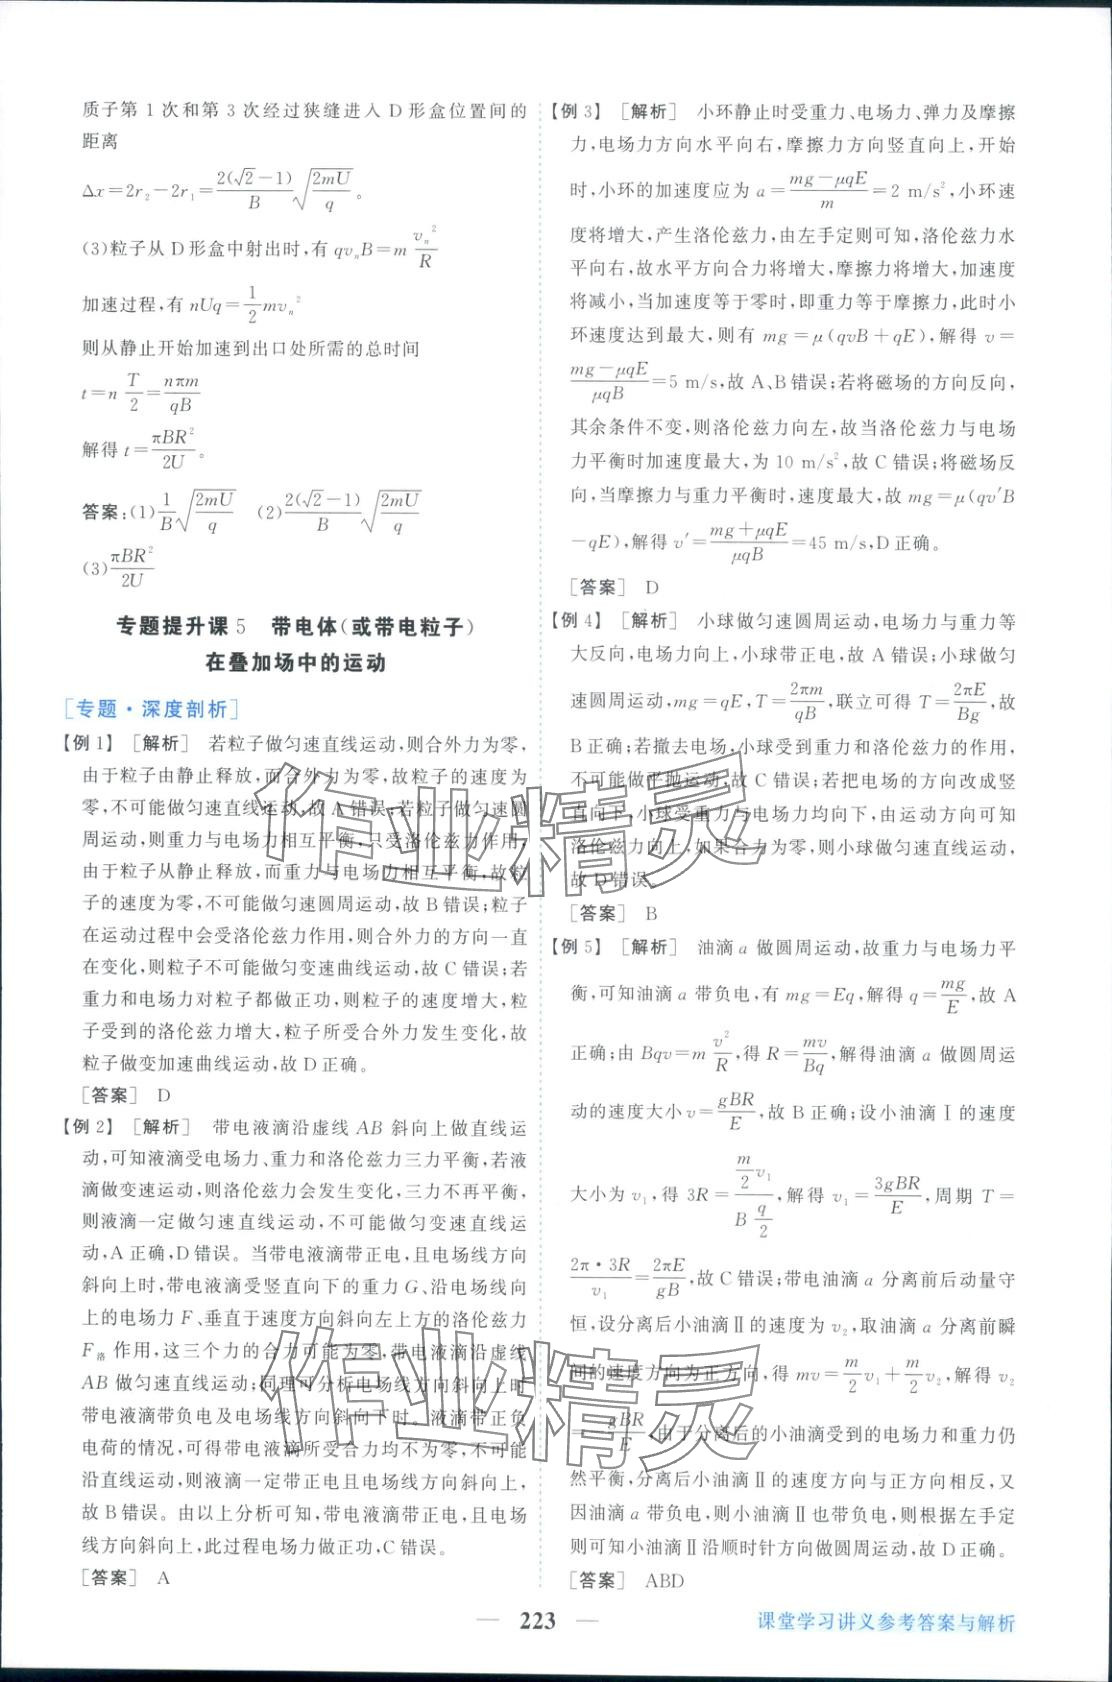 质子第 1 次和第 3 次经过狭缝进入 D 形盒位置间的
距离
Δx=2r₂-2r₁=2(√2-1)/B √(2mU/q)。
(3)粒子从 D 形盒中射出时,有 qvₙB=m vₙ²/R
加速过程,有 nUq=1/2 mvₙ²
则从静止开始加速到出口处所需的总时间
t=n T/2=nπm/qB
解得 t=πBR²/2U。
答案:(1)1/B √(2mU/q)　(2)2(√2-1)/B √(2mU/q)
(3)πBR²/2U
专题提升课 5　带电体(或带电粒子)
在叠加场中的运动
[专题·深度剖析]
【例 1】 [解析]　若粒子做匀速直线运动,则合外力为零,
由于粒子由静止释放,而合外力为零,故粒子的速度为
零,不可能做匀速直线运动,故 A 错误;若粒子做匀速圆
周运动,则重力与电场力相互平衡,只受洛伦兹力作用,
由于粒子从静止释放,而重力与电场力相互平衡,故粒
子的速度为零,不可能做匀速圆周运动,故 B 错误;粒子
在运动过程中会受洛伦兹力作用,则合外力的方向一直
在变化,则粒子不可能做匀变速曲线运动,故 C 错误;若
重力和电场力对粒子都做正功,则粒子的速度增大,粒
子受到的洛伦兹力增大,粒子所受合外力发生变化,故
粒子做变加速曲线运动,故 D 正确。
[答案]　D
【例 2】 [解析]　带电液滴沿虚线 AB 斜向上做直线运
动,可知液滴受电场力、重力和洛伦兹力三力平衡,若液
滴做变速运动,则洛伦兹力会发生变化,三力不再平衡,
则液滴一定做匀速直线运动,不可能做匀变速直线运
动,A 正确,D 错误。当带电液滴带正电,且电场线方向
斜向上时,带电液滴受竖直向下的重力 G、沿电场线向
上的电场力 F、垂直于速度方向斜向左上方的洛伦兹力
F洛 作用,这三个力的合力可能为零,带电液滴沿虚线
AB 做匀速直线运动;同理可分析电场线方向斜向上时
带电液滴带负电及电场线方向斜向下时。液滴带正负
电荷的情况,可得带电液滴所受合力均不为零,不可能
沿直线运动,则液滴一定带正电且电场线方向斜向上,
故 B 错误。由以上分析可知,带电液滴带正电,且电场
线方向斜向上,此过程电场力做正功,C 错误。
[答案]　A
【例 3】 [解析]　小环静止时受重力、电场力、弹力及摩擦
力,电场力方向水平向右,摩擦力方向竖直向上,开始
时,小环的加速度应为 a=(mg-μqE)/m=2 m/s²,小环速
度将增大,产生洛伦兹力,由左手定则可知,洛伦兹力水
平向右,故水平方向合力将增大,摩擦力将增大,加速度
将减小,当加速度等于零时,即重力等于摩擦力,此时小
环速度达到最大,则有 mg=μ(qvB+qE),解得 v=
(mg-μqE)/μqB=5 m/s,故 A、B 错误;若将磁场的方向反向,
其余条件不变,则洛伦兹力向左,故当洛伦兹力与电场
力平衡时加速度最大,为 10 m/s²,故 C 错误;将磁场反
向,当摩擦力与重力平衡时,速度最大,故 mg=μ(qv′B
-qE),解得 v′=(mg+μqE)/μqB=45 m/s,D 正确。
[答案]　D
【例 4】 [解析]　小球做匀速圆周运动,电场力与重力等
大反向,电场力向上,小球带正电,故 A 错误;小球做匀
速圆周运动,mg=qE,T=2πm/qB,联立可得 T=2πE/Bg,故
B 正确;若撤去电场,小球受到重力和洛伦兹力的作用,
不可能做平抛运动,故 C 错误;若把电场的方向改成竖
直向下,小球受重力与电场力均向下,由运动方向可知
洛伦兹力向上,如果合力为零,则小球做匀速直线运动,
故 D 错误。
[答案]　B
【例 5】 [解析]　油滴 a 做圆周运动,故重力与电场力平
衡,可知油滴 a 带负电,有 mg=Eq,解得 q=mg/E,故 A
正确;由 Bqv=m v²/R,得 R=mv/Bq,解得油滴 a 做圆周运
动的速度大小 v=gBR/E,故 B 正确;设小油滴Ⅰ的速度
大小为 v₁,得 3R=(m/2 v₁)/(B q/2),解得 v₁=3gBR/E,周期 T=
2π·3R/v₁=2πE/gB,故 C 错误;带电油滴 a 分离前后动量守
恒,设分离后小油滴Ⅱ的速度为 v₂,取油滴 a 分离前瞬
间的速度方向为正方向,得 mv=m/2 v₁+m/2 v₂,解得 v₂
=-gBR/E,由于分离后的小油滴受到的电场力和重力仍
然平衡,分离后小油滴Ⅱ的速度方向与正方向相反,又
因油滴 a 带负电,则小油滴Ⅱ也带负电,则根据左手定
则可知小油滴Ⅱ沿顺时针方向做圆周运动,故 D 正确。
[答案]　ABD
作业精灵
作业精灵
— 223 —
课堂学习讲义参考答案与解析